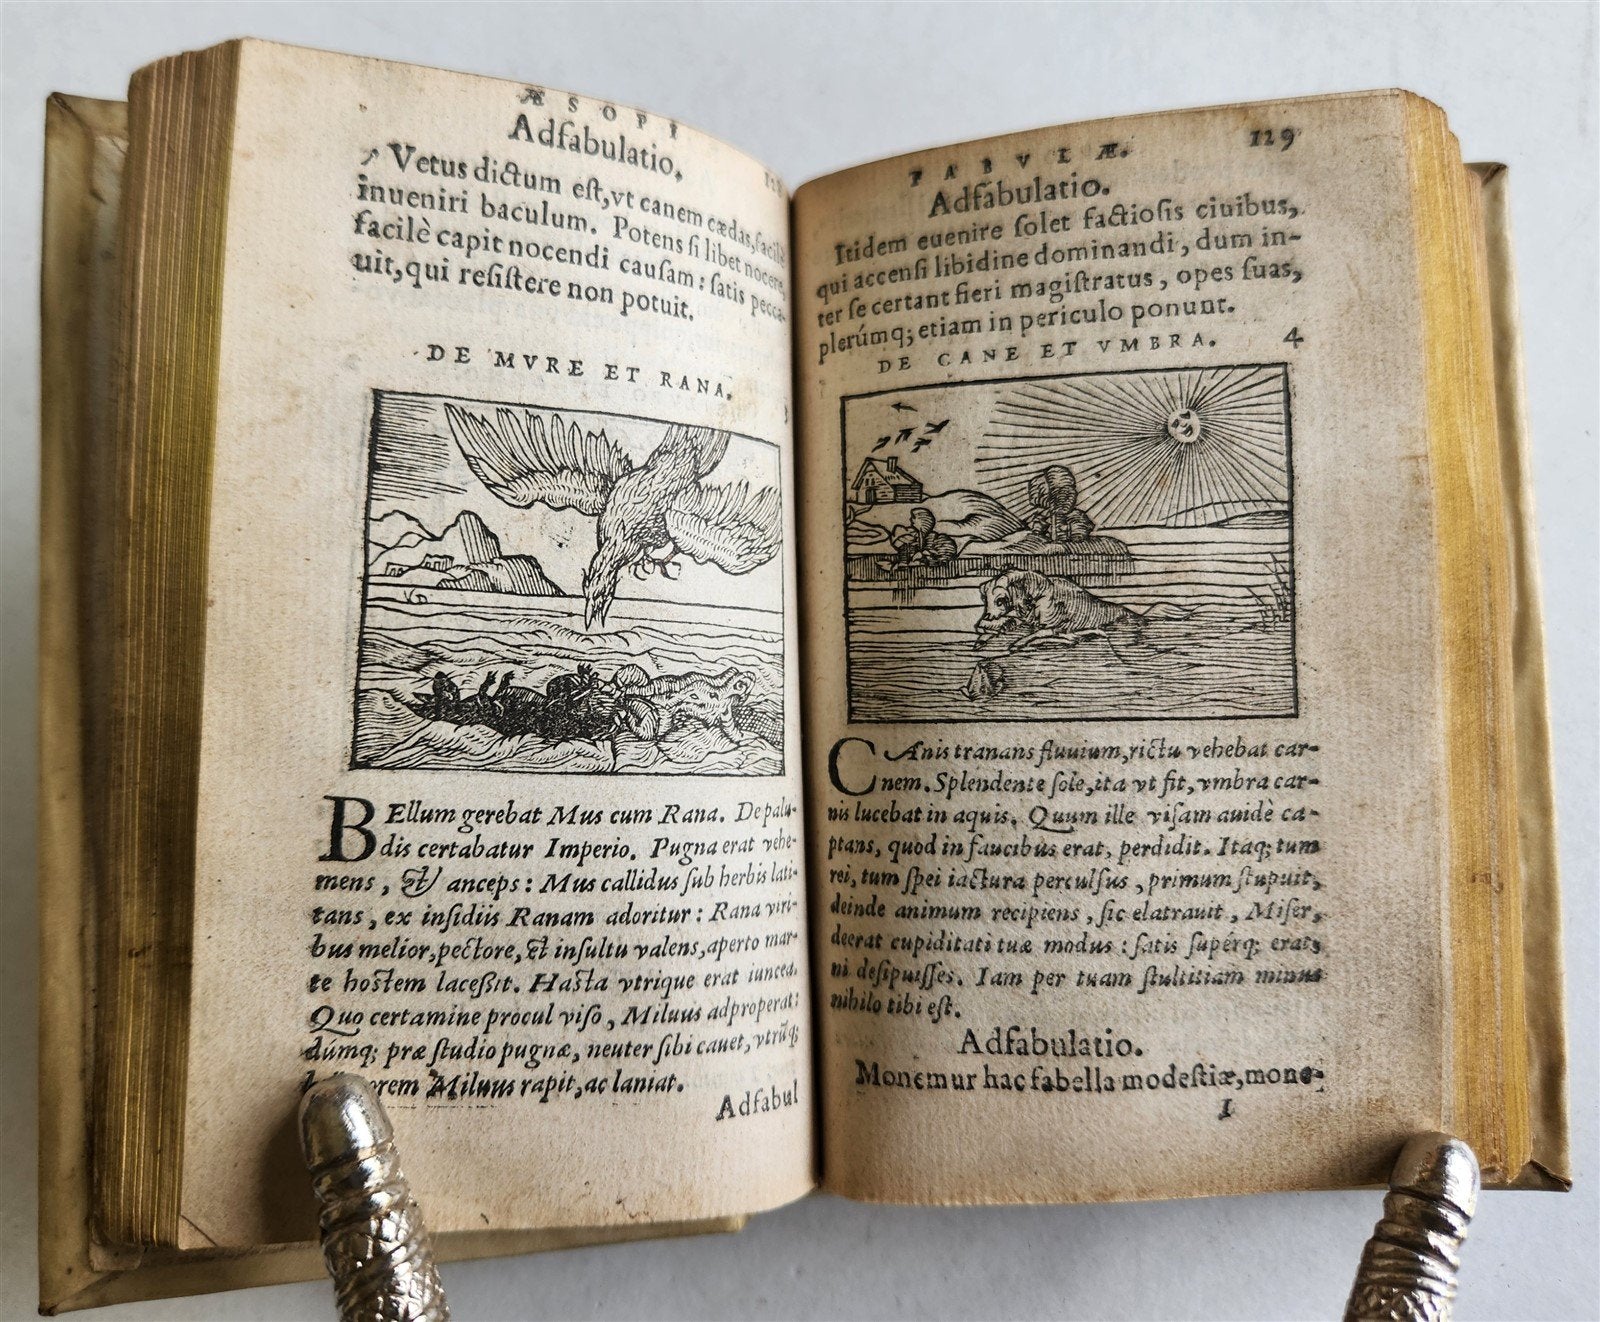 ÆSOPI
Adfabulatio.
Vetus dictum eſt, vt canem cædas, facilè
inueniri baculum. Potens ſi libet nocere,
facilè capit nocendi cauſam: ſatis pecca-
uit, qui reſiſtere non potuit.
DE MVRE ET RANA.
3
VGD
BEllum gerebat Mus cum Rana. De palu-
dis certabatur Imperio. Pugna erat vehe-
mens, et anceps: Mus callidus ſub herbis lati-
tans, ex inſidiis Ranam adoritur: Rana viri-
bus melior, pectore, et inſultu valens, aperto mar-
te hoſtem laceſſit. Haſta vtrique erat iuncea.
Quo certamine procul viſo, Miluus adproperat:
dúmq; præ ſtudio pugnæ, neuter ſibi cauet, vtrũq;
orem Miluus rapit, ac laniat.
Adfabul
FABVLÆ. 129
Adfabulatio.
Itidem euenire ſolet factioſis ciuibus,
qui accenſi libidine dominandi, dum in-
ter ſe certant fieri magiſtratus, opes ſuas,
plerúmq; etiam in periculo ponunt.
DE CANE ET VMBRA. 4
CAnis tranans fluuium, rictu vehebat car-
nem. Splendente ſole, ita vt fit, vmbra car-
nis lucebat in aquis. Quum ille viſam auidè ca-
ptans, quod in faucibus erat, perdidit. Itaq; tum
rei, tum ſpei iactura perculſus, primum ſtupuit,
deinde animum recipiens, ſic elatrauit, Miſer,
deerat cupiditati tuæ modus: ſatis ſupérq; erat,
ni deſipuiſſes. Iam per tuam ſtultitiam minus
nihilo tibi eſt.
Adfabulatio.
Monemur hac fabella modeſtiæ, mone-
I